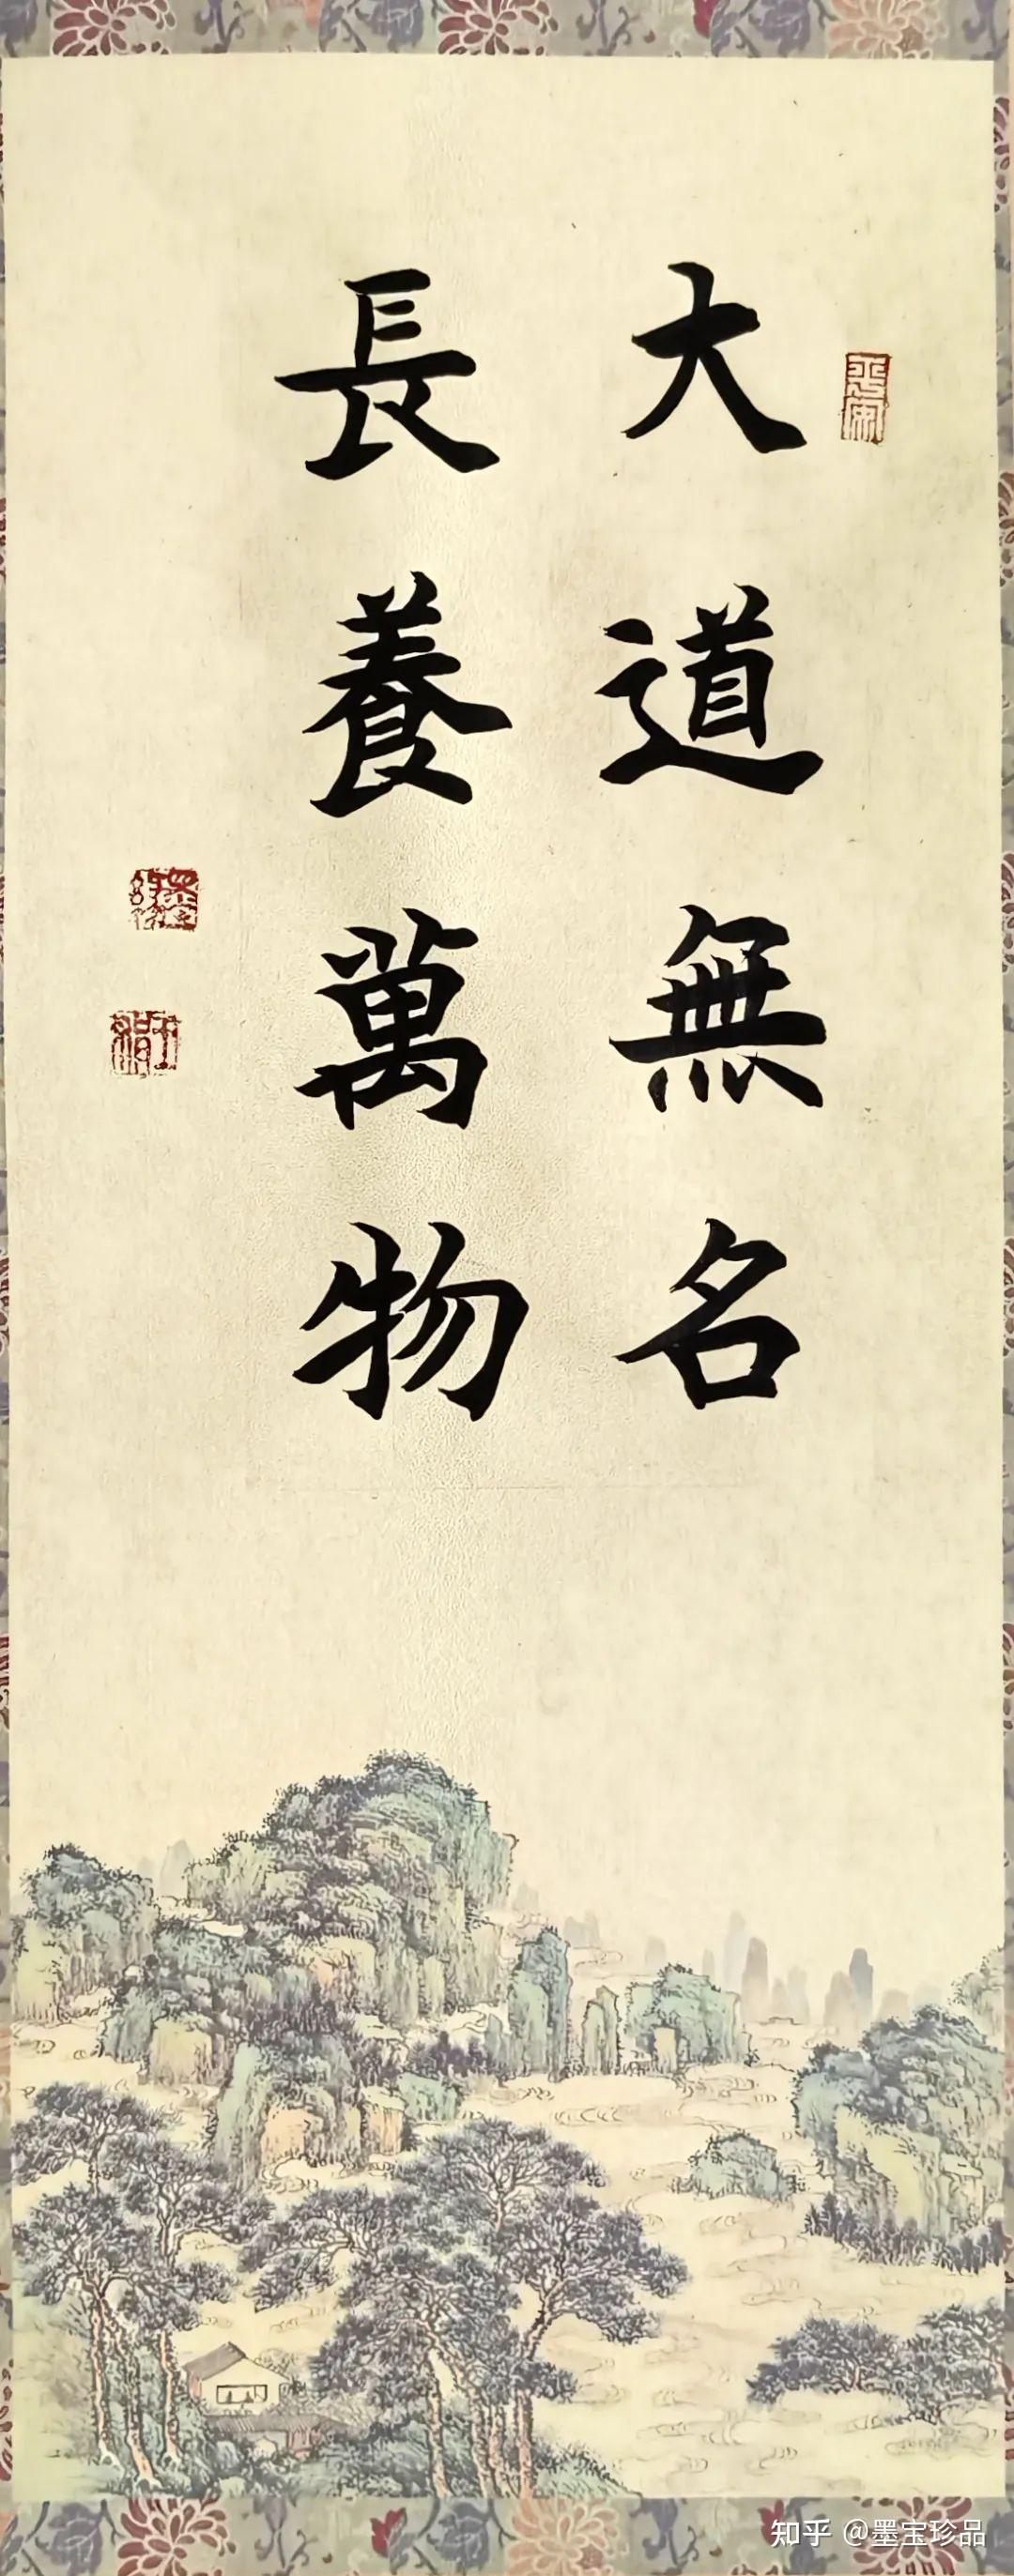 大道無名
長養萬物
知乎 @墨宝珍品